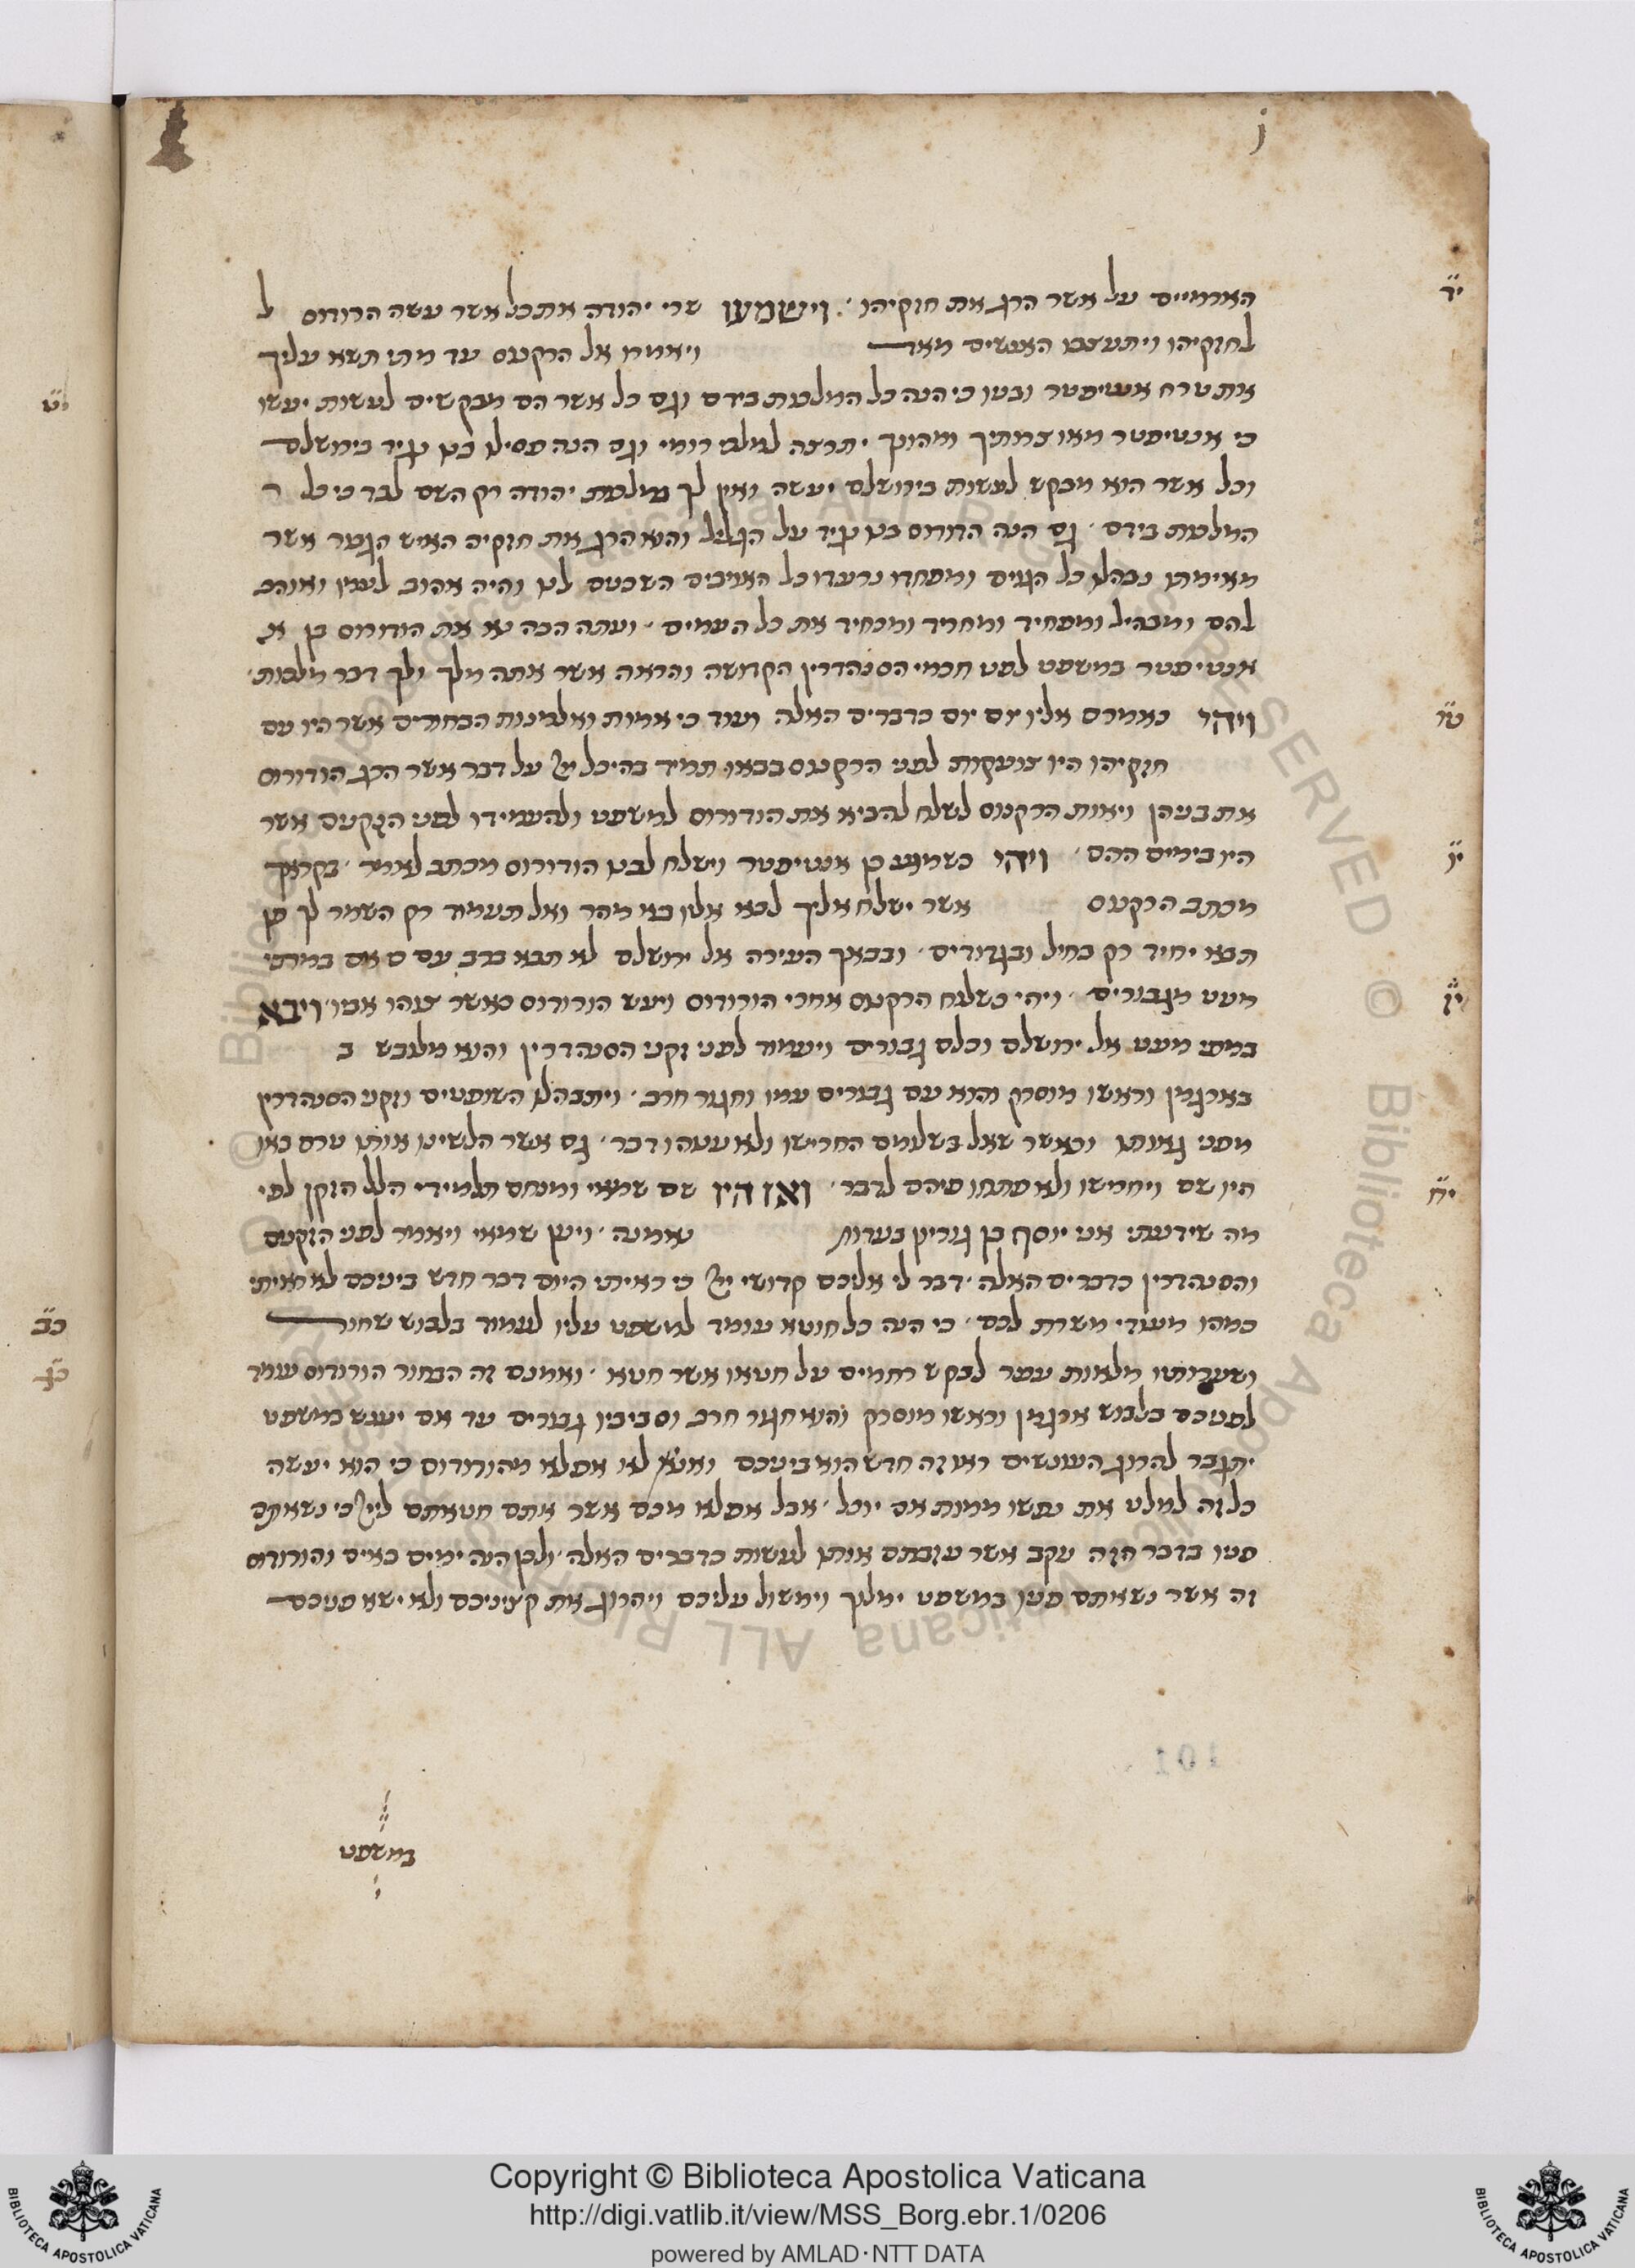 הארמיים על אשר הרג את חזקיהו׳ וישמעו שרי יהודה את כל אשר עשה הרודוס ל
לחזקיהו ויתעצבו האנשים מאד ויאמרו אל הרקנוס עד מתי תשא עליך
את טרח אנטיפטר ובניו כי הנה כל המלכות בידם וגם כל אשר הם מבקשים לעשות יעשו
כי אנטיפטר מאוצרותיך ומהונך יתרצה למלכי רומי וגם הנה פסילו בנו נגיד בירושלם
וכל אשר הוא מבקש לעשות בירושלם יעשה ואין לך מלכות יהודה רק השם לבד כי כל
המלכות בידם׳ גם הנה הרודוס בנו נגיד על הגליל והוא הרג את חזקיה האיש הגבור אשר
מאימתו נבהלו כל הגוים ומפחדו נרעדו כל האויבים השכנים לנו והיה אהוב לעמו ואויב
להם ומבהיל ומפחיד ומחריד ומכחיד את כל העמים׳ ועתה הבה נא את הורודוס בן א
אנטיפטר במשפט לפני חכמי הסנהדרין הקדושה והראה אשר אתה מלך ולך דבר מלכות׳
ויהי כאמרם אליו יום יום כדברים האלה ועוד כי אמות ואלמנות הבחורים אשר היו עם
חזקיהו היו צועקות לפני הרקנוס בבאו תמיד בהיכל ייי על דבר אשר הרג הורודוס
את בניהן ויאות הרקנוס לשלח להביא את הורודוס למשפט ולהעמידו לפני הזקנים אשר
היו בימים ההם׳ ויהי כשמוע כן אנטיפטר וישלח לבנו הורודוס מכתב לאמר׳ בקראך
מכתב הרקנוס אשר ישלח אליך לבא אליו בא מהר ואל תעמוד רק השמר לך פן
תבא יחיד רק בחיל ובגדודים׳ ובבאך העירה אל ירושלם לא תבא ברב עם כי אם במתי
מעט מגבורים׳ ויהי כשלח הרקנוס אחרי הורודוס ויעש הורודוס כאשר צוהו אביו׳ ויבא
במתי מעט אל ירושלם וכלם גבורים ויעמוד לפני זקני הסנהדרין והוא מלובש ב
בארגמן וראשו מוסרק והוא עם גבורים עמו וחגור חרב׳ ויתבהלו השופטים וזקני הסנהדרין
מפני גאותו וכאשר שאל בשלומם החרישו ולא ענוהו דבר׳ גם אשר הלשינו אותו טרם באו
היו שם ויחרישו ולא פתחו פיהם לדבר׳ ואז היו שם שמאי ומנחם תלמידי הלל הזקן לפי
מה שידעתי אני יוסף בן גוריון בעדות נאמנה׳ ויען שמאי ויאמר לפני הזקנים
והסנהדרין כדברים האלה׳ דבר לי אליכם קדושי ייי כי ראיתי היום דבר חדש ביניכם לא ראיתי
כמהו מעודי משרת לכם׳ כי הנה כל חוטא עומד למשפט עליו לעמוד בלבוש שחור
ושערותיו מלאות עפר לבקש רחמים על חטאו אשר חטא׳ ואמנם זה הבחור הורודוס עומד
לפניכם בלבוש ארגמן וראשו מוסרק והוא חגור חרב וסביביו גבורים עד אם יענש במשפט
יתגבר להרוג העונשים ראו זה חדש הוא ביניכם ואני לא אפלא מהורודוס כי הוא יעשה
כל זה למלט את נפשו ממות אם יוכל׳ אבל אפלא מכם אשר אתם חטאתם לייי כי נשאתם
פניו בדבר הזה עקב אשר עזבתם אותו לעשות כדברים האלה׳ ולכן הנה ימים באים והורודוס
זה אשר נשאתם פניו במשפט ימלוך וימשול עליכם ויהרוג את קציניכם ולא ישא פניכם
במשפט
יד
טו
יו
יז
יח
כב
Copyright © Biblioteca Apostolica Vaticana
http://digi.vatlib.it/view/MSS_Borg.ebr.1/0206
powered by AMLAD·NTT DATA